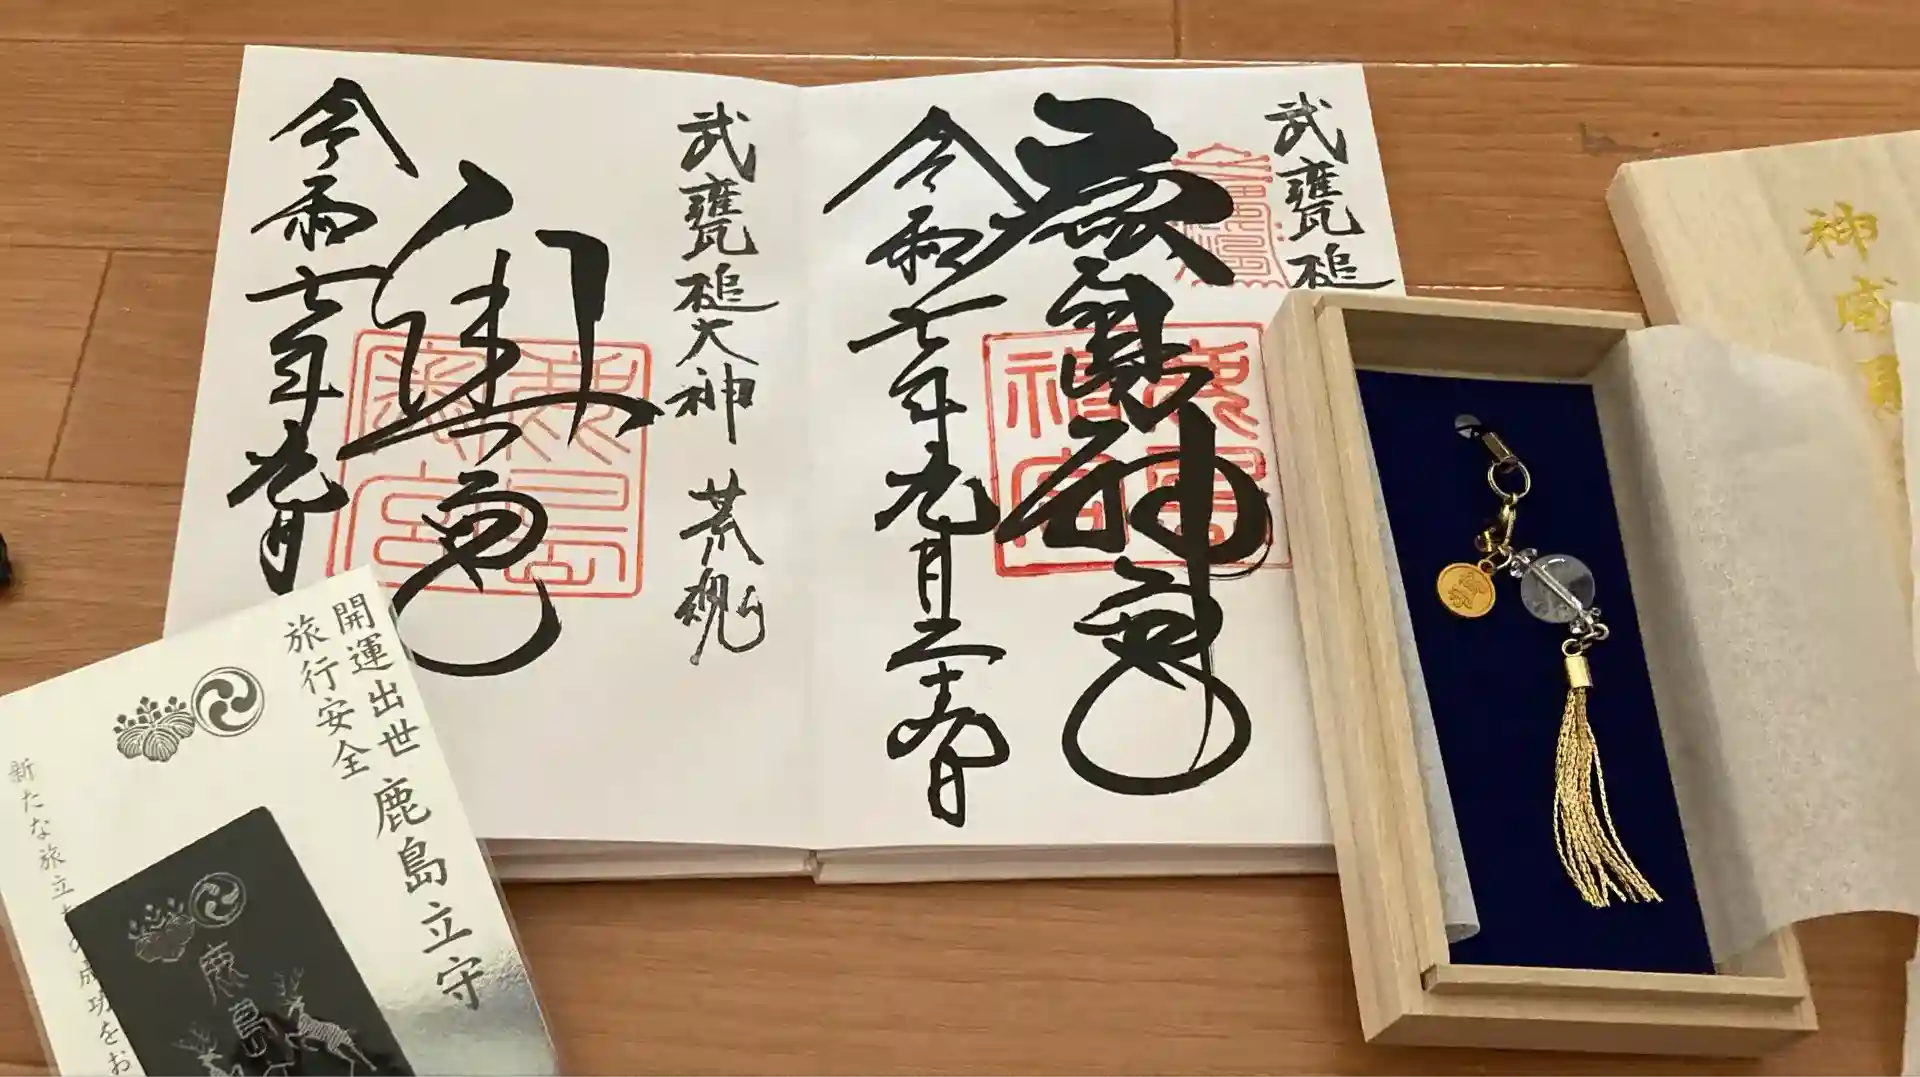 武甕槌
鹿島神宮
鹿島神宮
令和七年九月二十
武甕槌大神 荒魂
奥宮
鹿島奥宮
令和七年九月
開運出世
旅行安全
鹿島立守
新たな旅立ちの成功をお
鹿島
神威